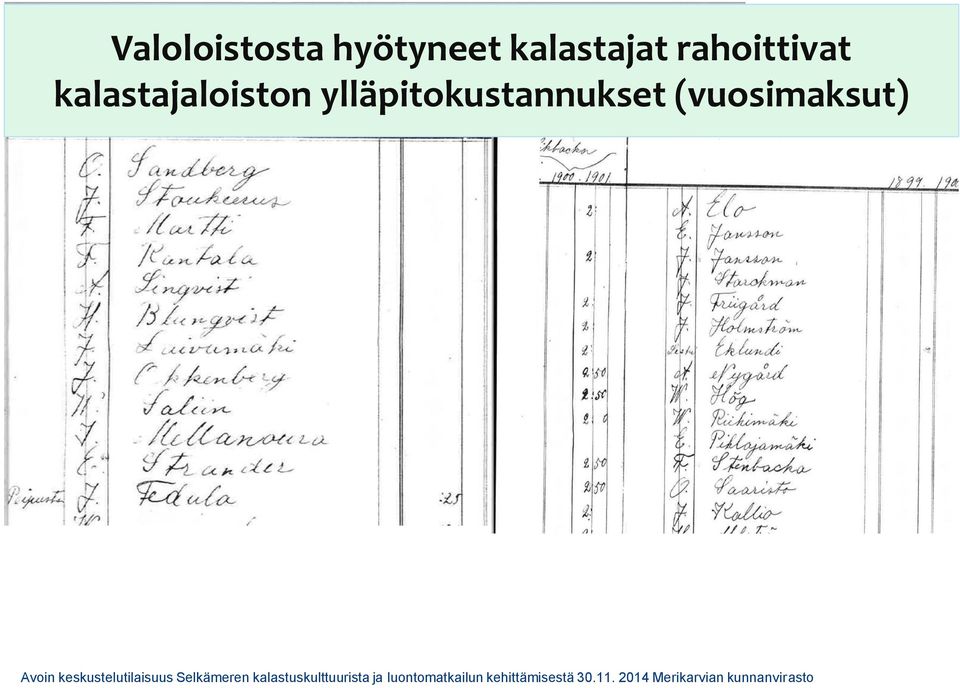 Valoloistosta hyötyneet kalastajat rahoittivat
kalastajaloiston ylläpitokustannukset (vuosimaksut)
O. Sandberg
J. Stoukurus
F. Martti
F. Kantala
A. Lingvist
H. Blungvist
J. Laivumäki
J. Okkenberg
H. Saliin
J. Mellanoura
E. Strander
J. Fedula :25
1900. 1901
1899. 190
2: A. Elo
E. Jansson
2: J. Jansson
J. Starckman
2: J. Friigård
2: J. Holmström
2: Eklundi
2:50 A. Nygård
2:50 W. Hög
2: 0 W. Riikimäki
E. Pihlajamäki
2:50 F. Stenbacka
2:50 O. Saaristo
2: J. Kallio
Avoin keskustelutilaisuus Selkämeren kalastuskulttuurista ja luontomatkailun kehittämisestä 30.11. 2014 Merikarvian kunnanvirasto